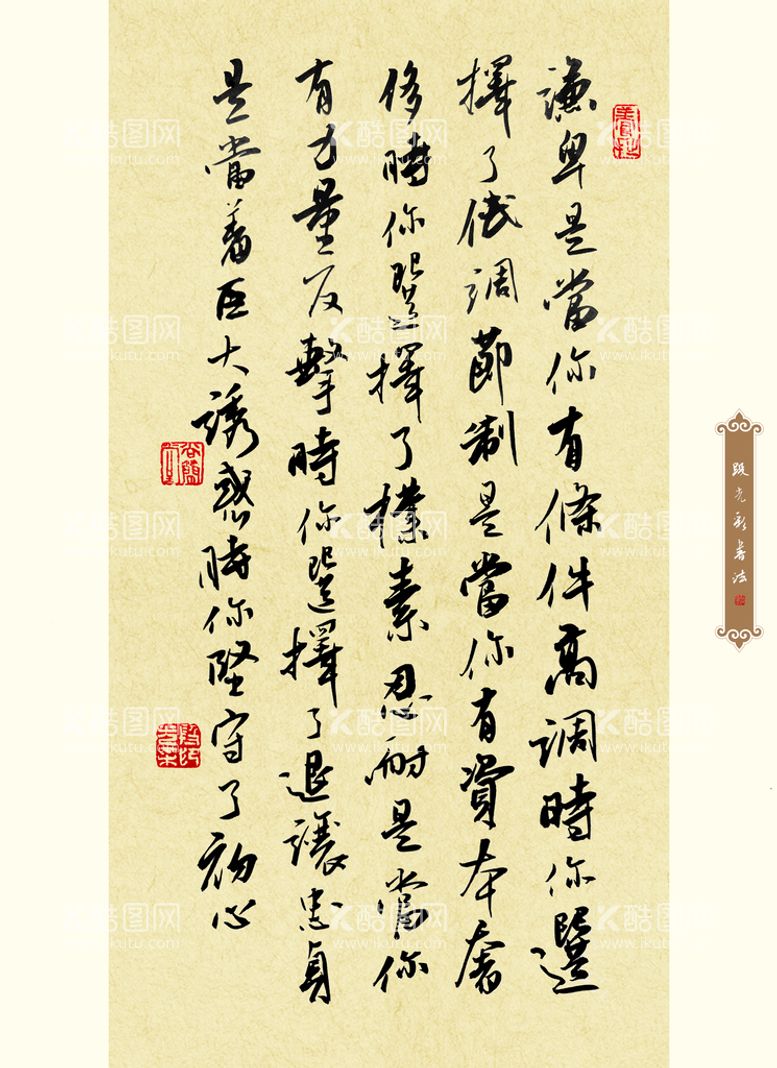 謙卑是當你有條件高調時你選
擇了低調節制是當你有資本奢
侈時你選擇了樸素忍耐是當你
有力量反擊時你選擇了退讓忠貞
是當着巨大誘惑時你堅守了初心
段光彩書法
K酷图网
www.ikutu.com